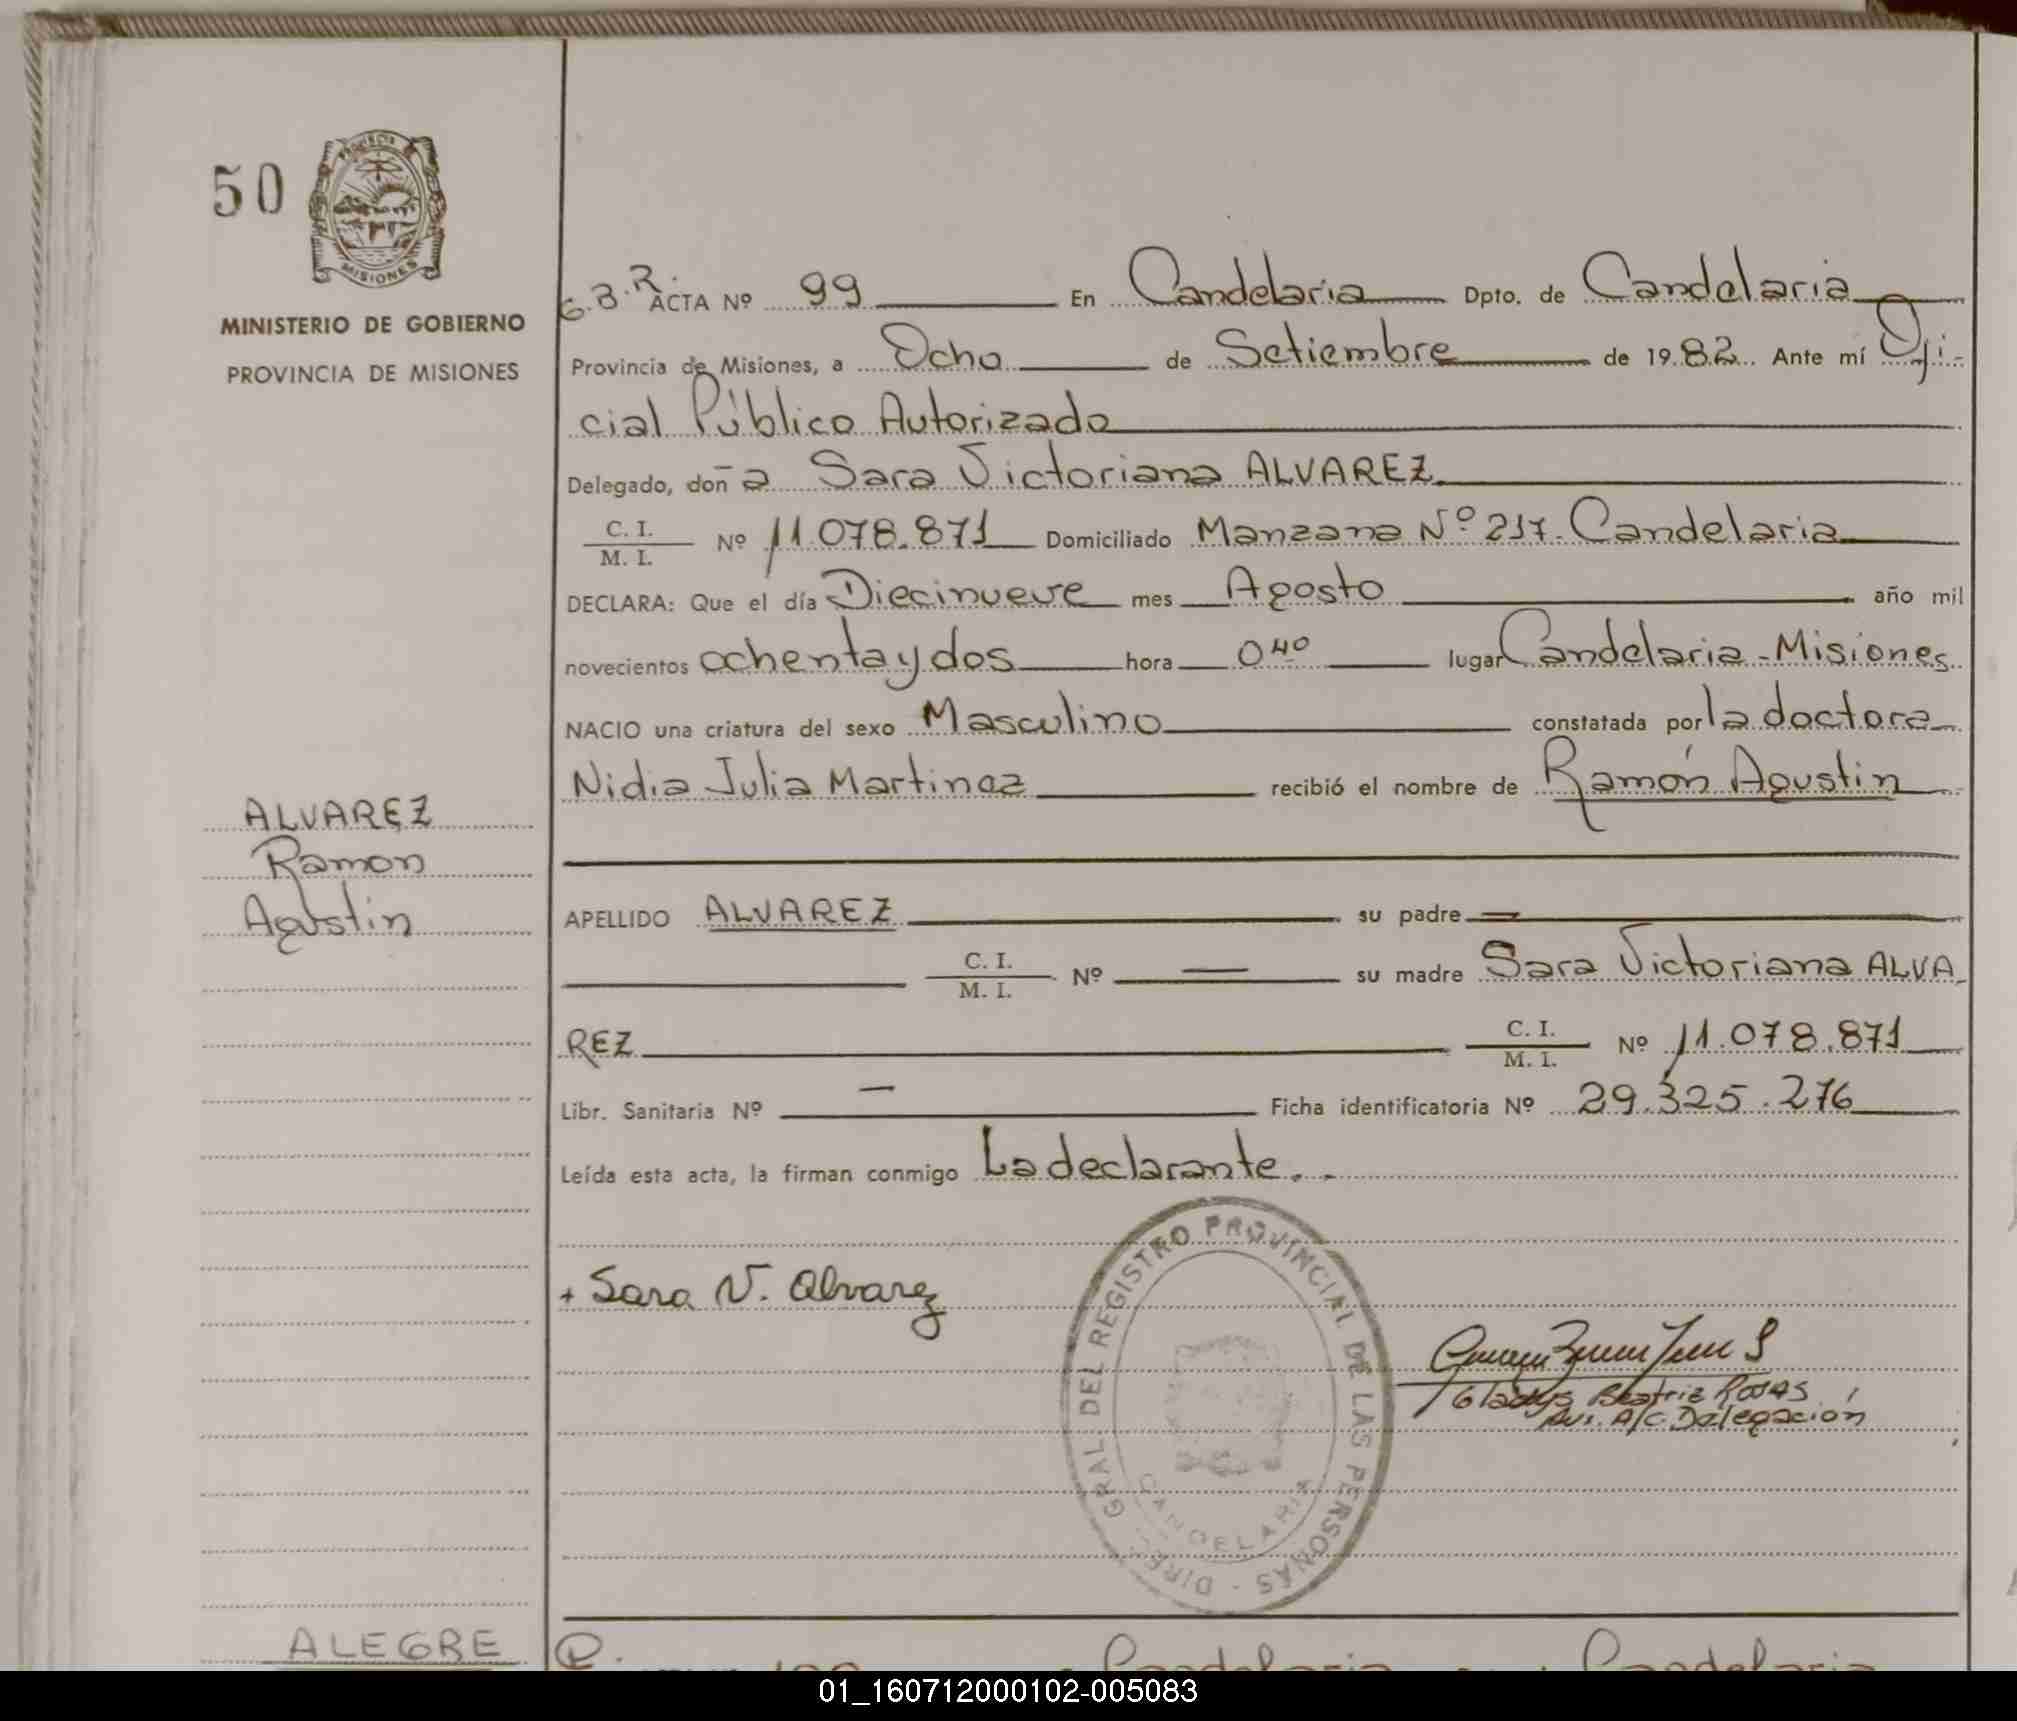 50
MISIONES
MINISTERIO DE GOBIERNO
PROVINCIA DE MISIONES
G.B.R. ACTA Nº 99 En Candelaria Dpto. de Candelaria
Provincia de Misiones, a Ocho de Setiembre de 1982 Ante mí Ofi-
cial Público Autorizado
Delegado, doña Sara Victoriana ALVAREZ
C. I.
M. I. Nº 11.078.871 Domiciliado Manzana Nº 217. Candelaria
DECLARA: Que el día Diecinueve mes Agosto año mil
novecientos ochenta y dos hora 0 40 lugar Candelaria-Misiones
NACIO una criatura del sexo Masculino constatada por la doctora
Nidia Julia Martinez recibió el nombre de Ramón Agustin
ALVAREZ
Ramon
Agustin
APELLIDO ALVAREZ su padre —
C. I.
M. I. Nº — su madre Sara Victoriana ALVA
REZ C. I.
M. I. Nº 11.078.871
Libr. Sanitaria Nº — Ficha identificatoria Nº 29.325.276
Leída esta acta, la firman conmigo La declarante..
+ Sara V. Alvarez
DIREC. GRAL. DEL REGISTRO PROVINCIAL DE LAS PERSONAS
CANDELARIA
Gladys Beatriz Rosas
Aux. A/C. Delegación
ALEGRE
Candelaria Candelaria
01_160712000102-005083